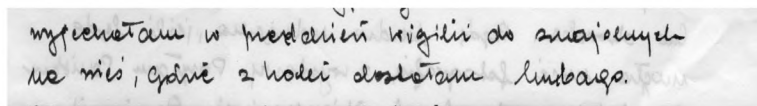 wyjechałam w przeddzień wigilii do znajomych
na wieś, gdzie z kolei dostałam lumbago.